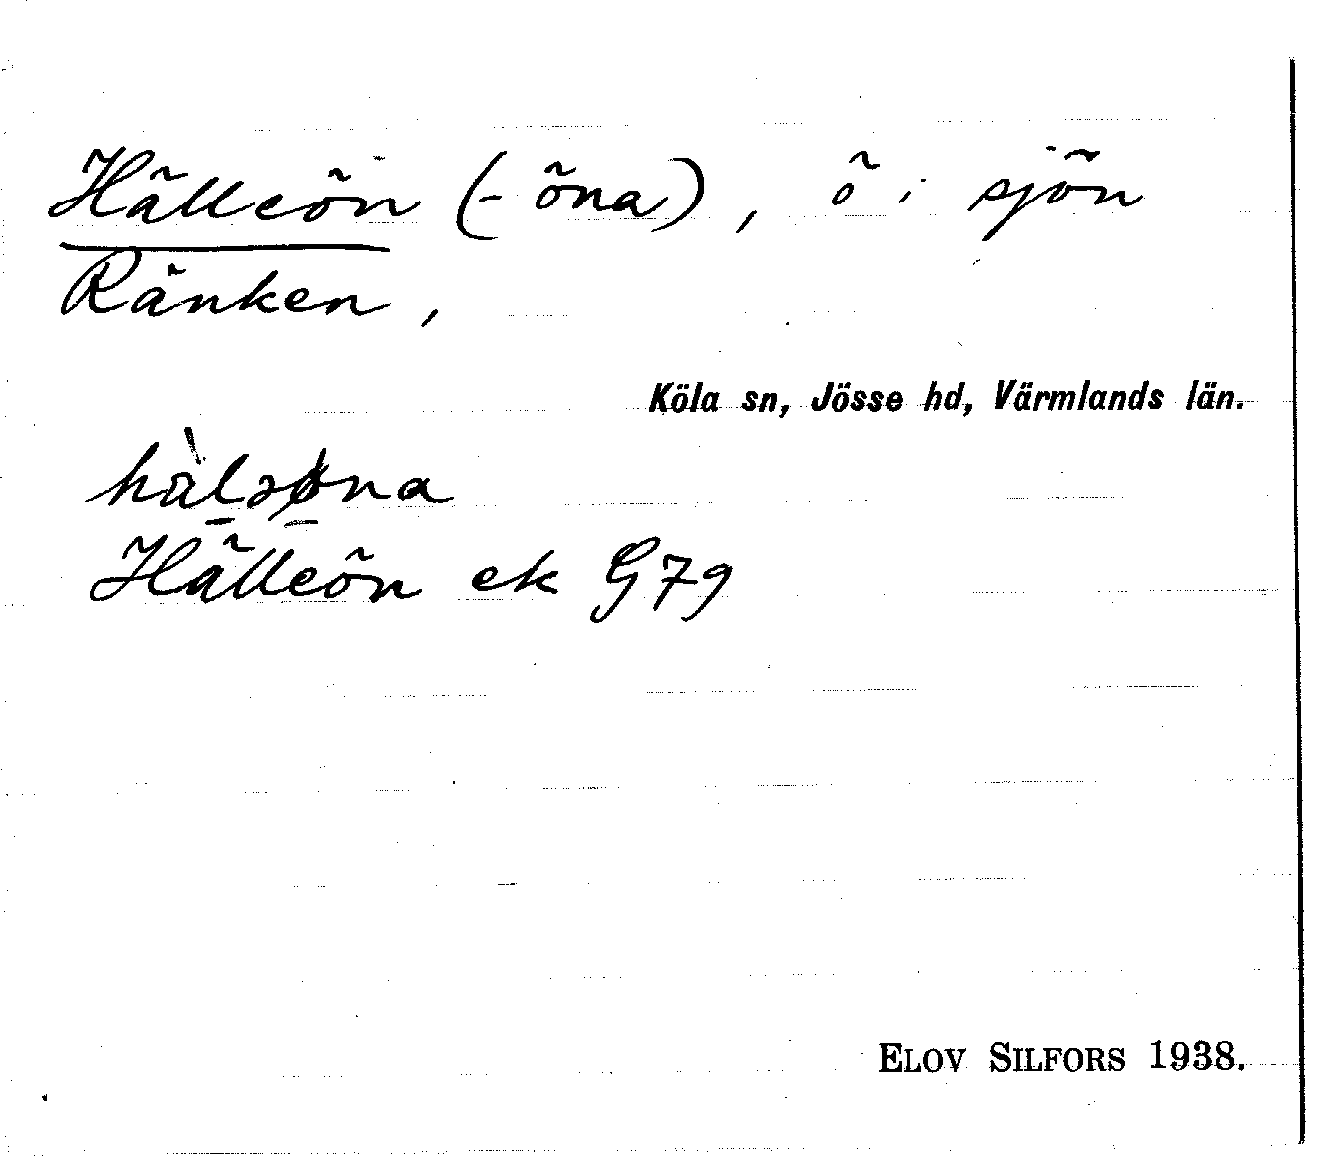 Hälleön (-öna), ö i sjön
Ränken,
Köla sn, Jösse hd, Värmlands län.
hàləøna
Hälleön ek G79
ELOV SILFORS 1938.